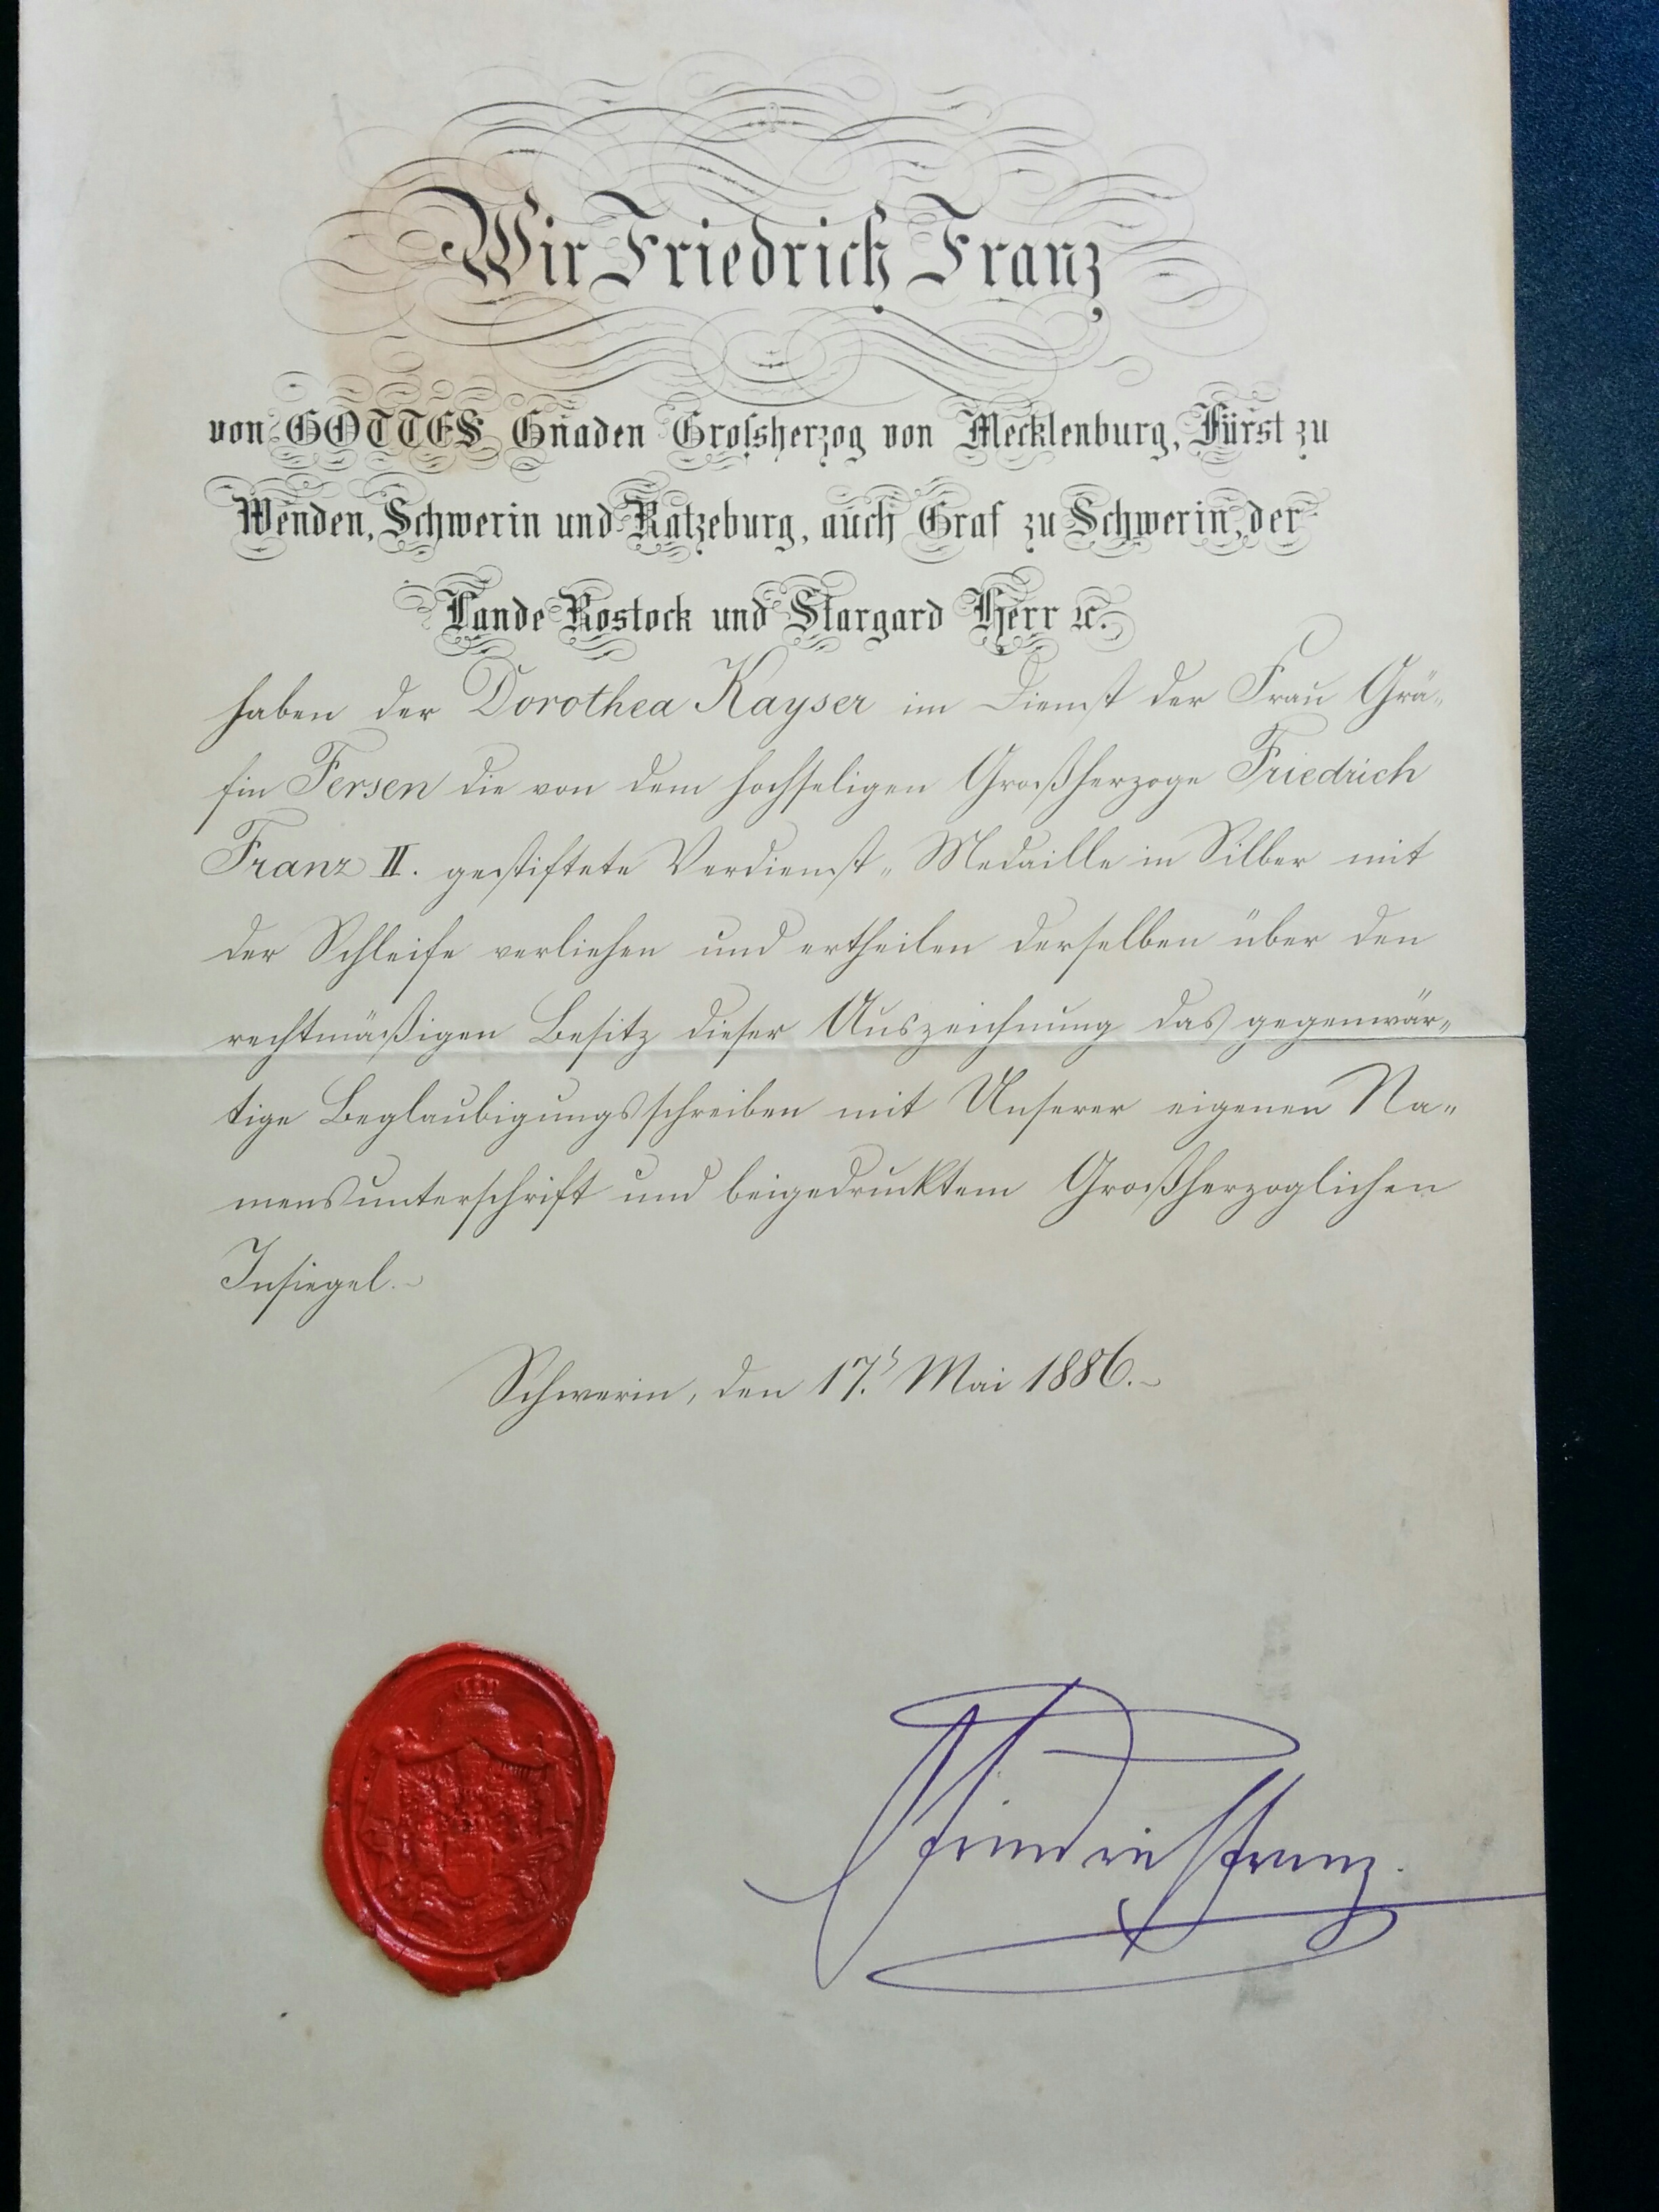 Wir Friedrich Franz
von GOTTES Gnaden Grossherzog von Mecklenburg, Fürst zu
Wenden, Schwerin und Ratzeburg, auch Graf zu Schwerin, der
Lande Rostock und Stargard Herr ꝛc.
haben der Dorothea Kayser im Dienst der Frau Grä-
fin Fersen die von dem hochseligen Großherzoge Friedrich
Franz II. gestiftete Verdienst-Medaille in Silber mit
der Schleife verliehen und ertheilen derselben über den
rechtmäßigen Besitz dieser Auszeichnung das gegenwär-
tige Beglaubigungsschreiben mit Unserer eigenen Na-
mensunterschrift und beigedrucktem Großherzoglichen
Insiegel.
Schwerin, den 17. Mai 1886.
Friedrich Franz.